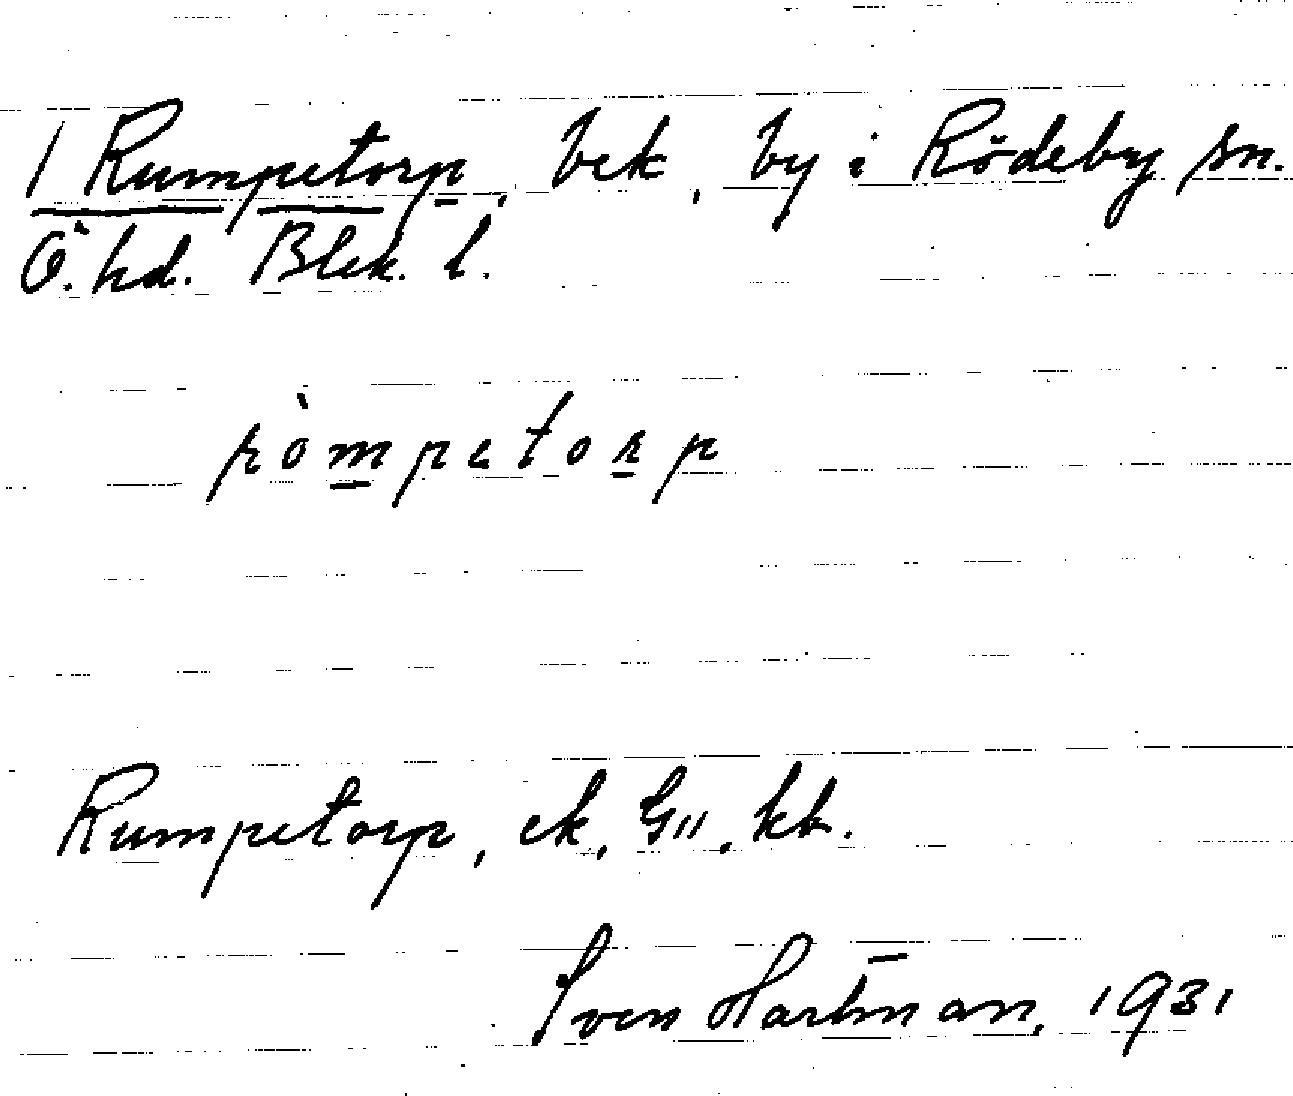 1 Rumpetorp, bek, by i Rödeby sn.
Ö. hd. Blek. l.
ròmpetorp
Rumpetorp, ek, G11, kb.
Sven Hartman, 1931